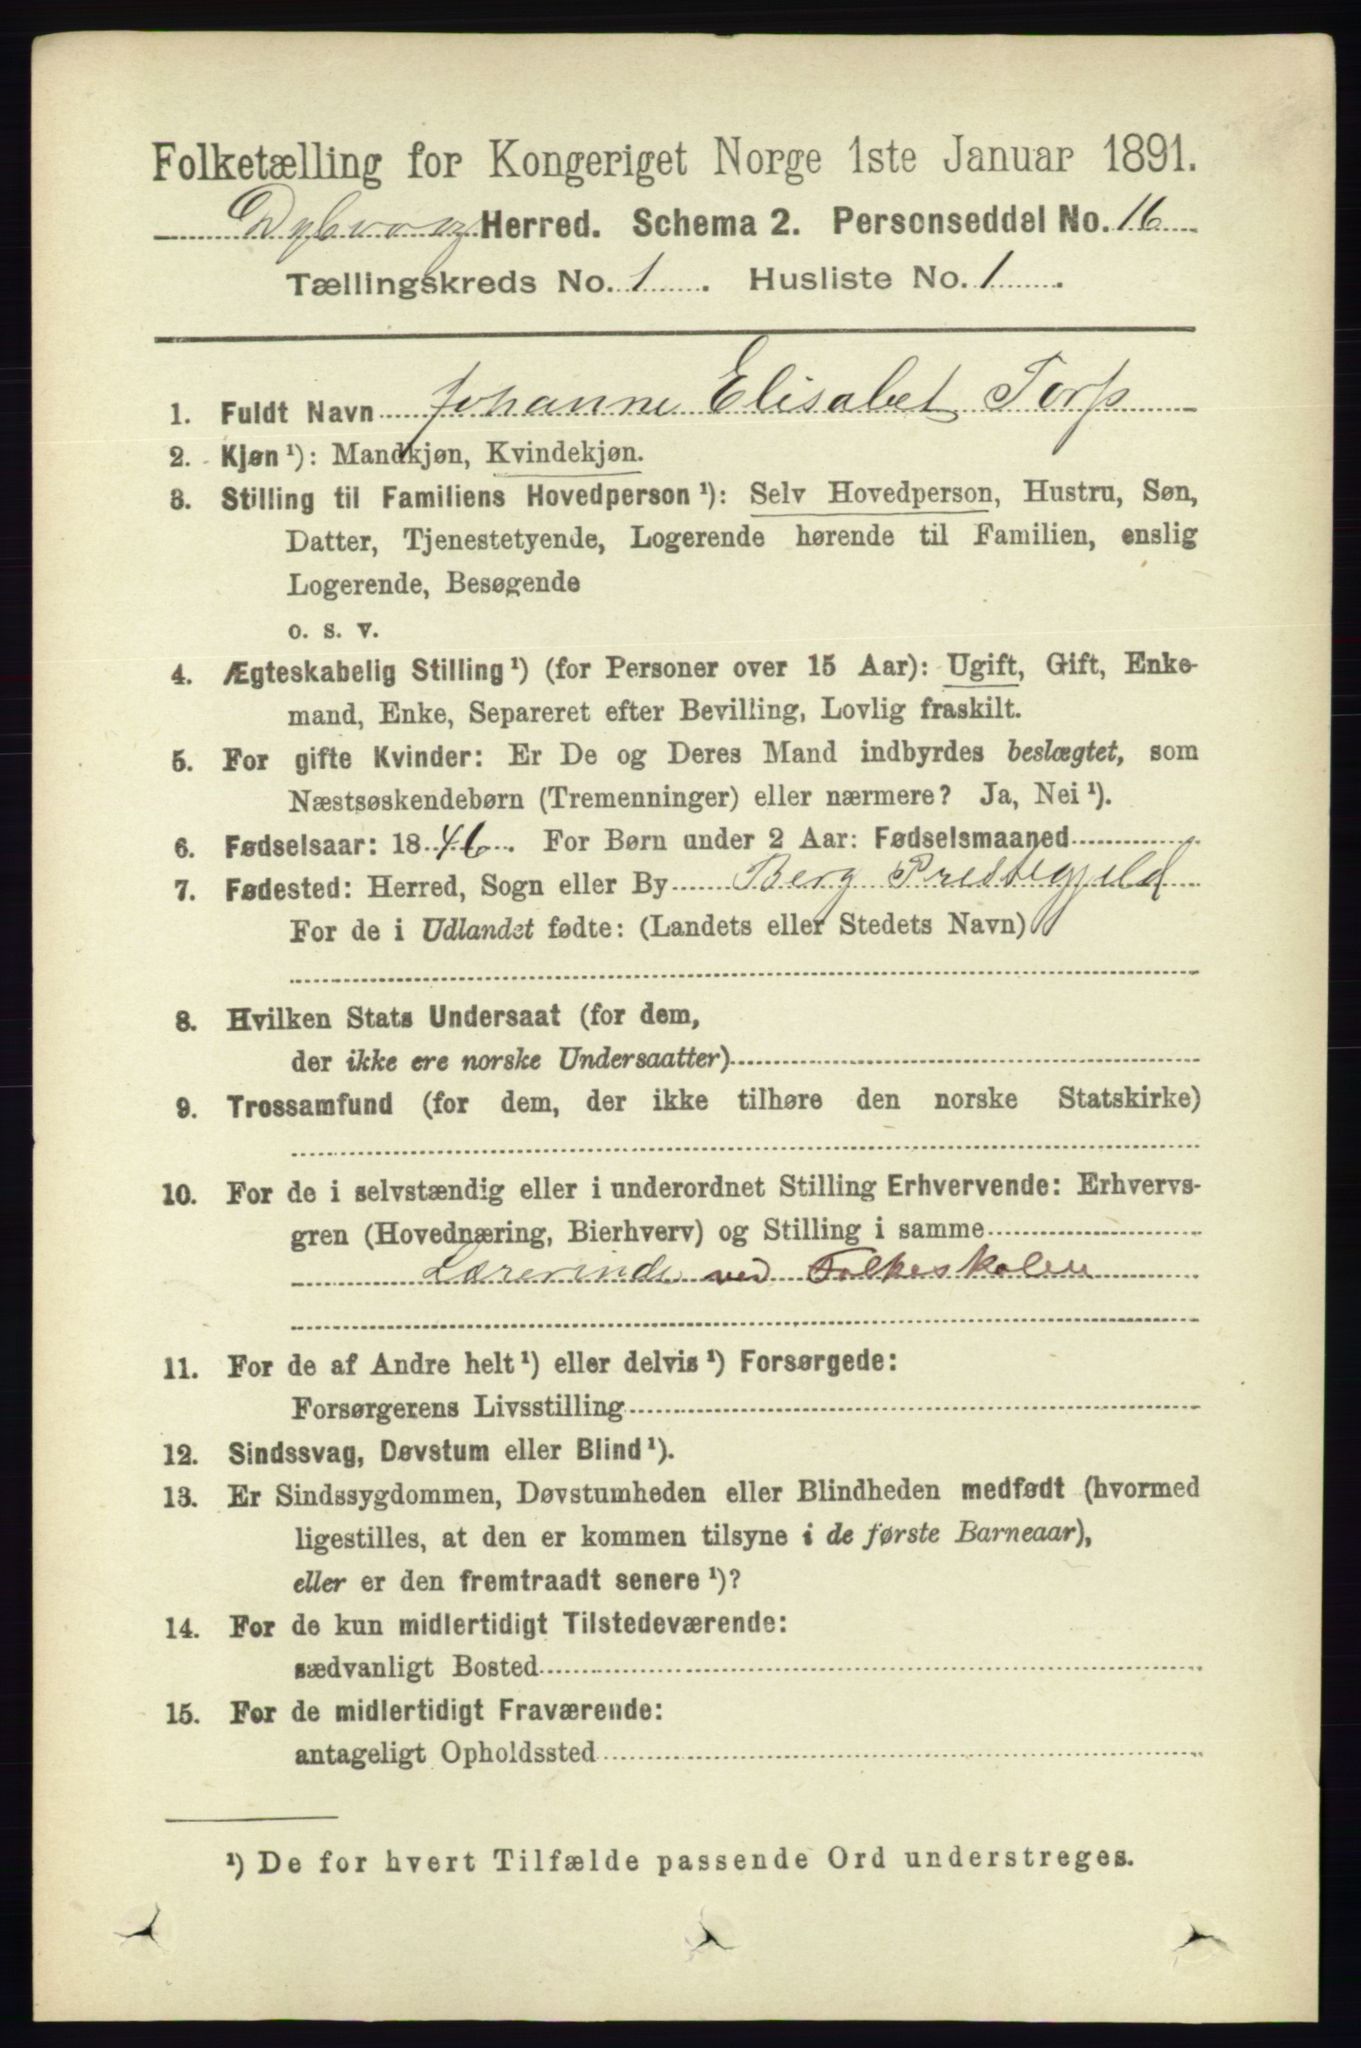 Folketælling for Kongeriget Norge 1ste Januar 1891.
Dybvaag Herred. Schema 2. Personseddel No. 16
Tællingskreds No. 1. Husliste No. 1.
1. Fuldt Navn Johanne Elisabet Torp
2. Kjøn ¹): Mandkjøn, Kvindekjøn.
3. Stilling til Familiens Hovedperson ¹): Selv Hovedperson, Hustru, Søn,
Datter, Tjenestetyende, Logerende hørende til Familien, enslig
Logerende, Besøgende
o. s. v.
4. Ægteskabelig Stilling ¹) (for Personer over 15 Aar): Ugift, Gift, Enke-
mand, Enke, Separeret efter Bevilling, Lovlig fraskilt.
5. For gifte Kvinder: Er De og Deres Mand indbyrdes beslægtet, som
Næstsøskendebørn (Tremenninger) eller nærmere? Ja, Nei ¹).
6. Fødselsaar: 1846. For Børn under 2 Aar: Fødselsmaaned
7. Fødested: Herred, Sogn eller By Berg Prestegjeld
For de i Udlandet fødte: (Landets eller Stedets Navn)
8. Hvilken Stats Undersaat (for dem,
der ikke ere norske Undersaatter)
9. Trossamfund (for dem, der ikke tilhøre den norske Statskirke)
10. For de i selvstændig eller i underordnet Stilling Erhvervende: Erhvervs-
gren (Hovednæring, Bierhverv) og Stilling i samme
Lærerinde ved Folkeskolen
11. For de af Andre helt ¹) eller delvis ¹) Forsørgede:
Forsørgerens Livsstilling
12. Sindssvag, Døvstum eller Blind ¹).
13. Er Sindssygdommen, Døvstumheden eller Blindheden medfødt (hvormed
ligestilles, at den er kommen tilsyne i de første Barneaar),
eller er den fremtraadt senere ¹)?
14. For de kun midlertidigt Tilstedeværende:
sædvanligt Bosted
15. For de midlertidigt Fraværende:
antageligt Opholdssted
¹) De for hvert Tilfælde passende Ord understreges.